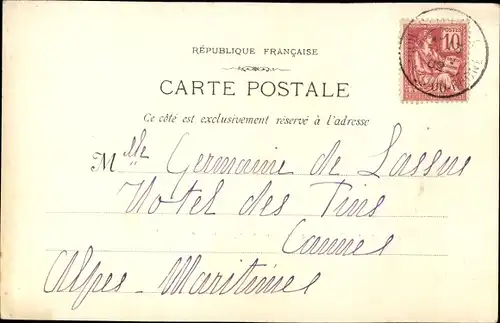 RÉPUBLIQUE FRANÇAISE
CARTE POSTALE
Ce côté est exclusivement réservé à l'adresse
Mlle Germaine de Lassus
Hotel des Pins
Cannes
Alpes-Maritimes
POSTES
10